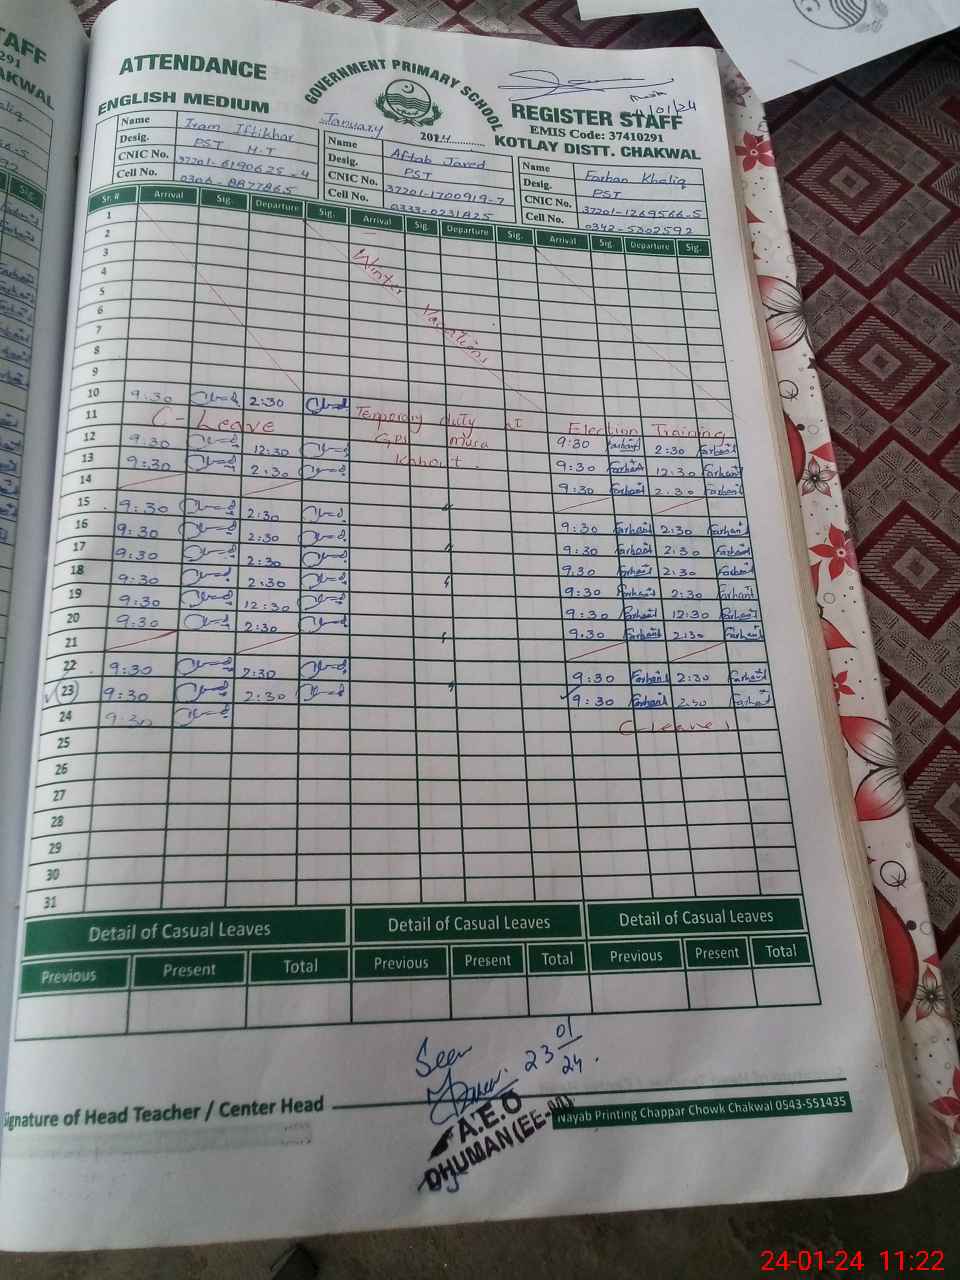 ATTENDANCE
GOVERNMENT PRIMARY SCHOOL
REGISTER STAFF
ENGLISH MEDIUM
EMIS Code: 37410291
KOTLAY DISTT. CHAKWAL
January 2024
Name Iram Iftikhar
Desig. PST H.T
CNIC No. 37201-6190625-4
Cell No.
Name Aftab Javed
Desig. PST
CNIC No. 37201-1700919-7
Cell No. 0333-0231825
Name Farhan Khaliq
Desig. PST
CNIC No. 37201-1269566-5
Cell No. 0342-5302592
Sr. # Arrival Sig. Departure Sig. Arrival Sig. Departure Sig. Arrival Sig. Departure Sig.
1
2
3
Winter Vacations
4
5
6
7
8
9
10 9:30 2:30
11 C-Leave Temporary duty at Election Training
12 9:30 12:30 GPS Mura 9:30 Farhan 2:30 Farhan
13 9:30 2:30 Kahout 9:30 Farhan 12:30 Farhan
14 9:30 Farhan 2:30 Farhan
15 9:30 2:30 "
16 9:30 2:30 9:30 Farhan 2:30 Farhan
17 9:30 2:30 " 9:30 Farhan 2:30 Farhan
18 9:30 2:30 " 9:30 Farhan 2:30 Farhan
19 9:30 12:30 9:30 Farhan 2:30 Farhan
20 9:30 2:30 9:30 Farhan 12:30 Farhan
21 " 9:30 Farhan 2:30 Farhan
22 9:30 2:30 9:30 Farhan 2:30 Farhan
23 9:30 2:30 " 9:30 Farhan 2:30 Farhan
24 9:30 C-leave
25
26
27
28
29
30
31
Detail of Casual Leaves Detail of Casual Leaves Detail of Casual Leaves
Previous Present Total Previous Present Total Previous Present Total
Seen
23 01/24.
Signature of Head Teacher / Center Head
Nayab Printing Chappar Chowk Chakwal 0543-551435
A.E.O
DHUMAN (EE-M)
24-01-24 11:22
STAFF
291
CHAKWAL
Sig.